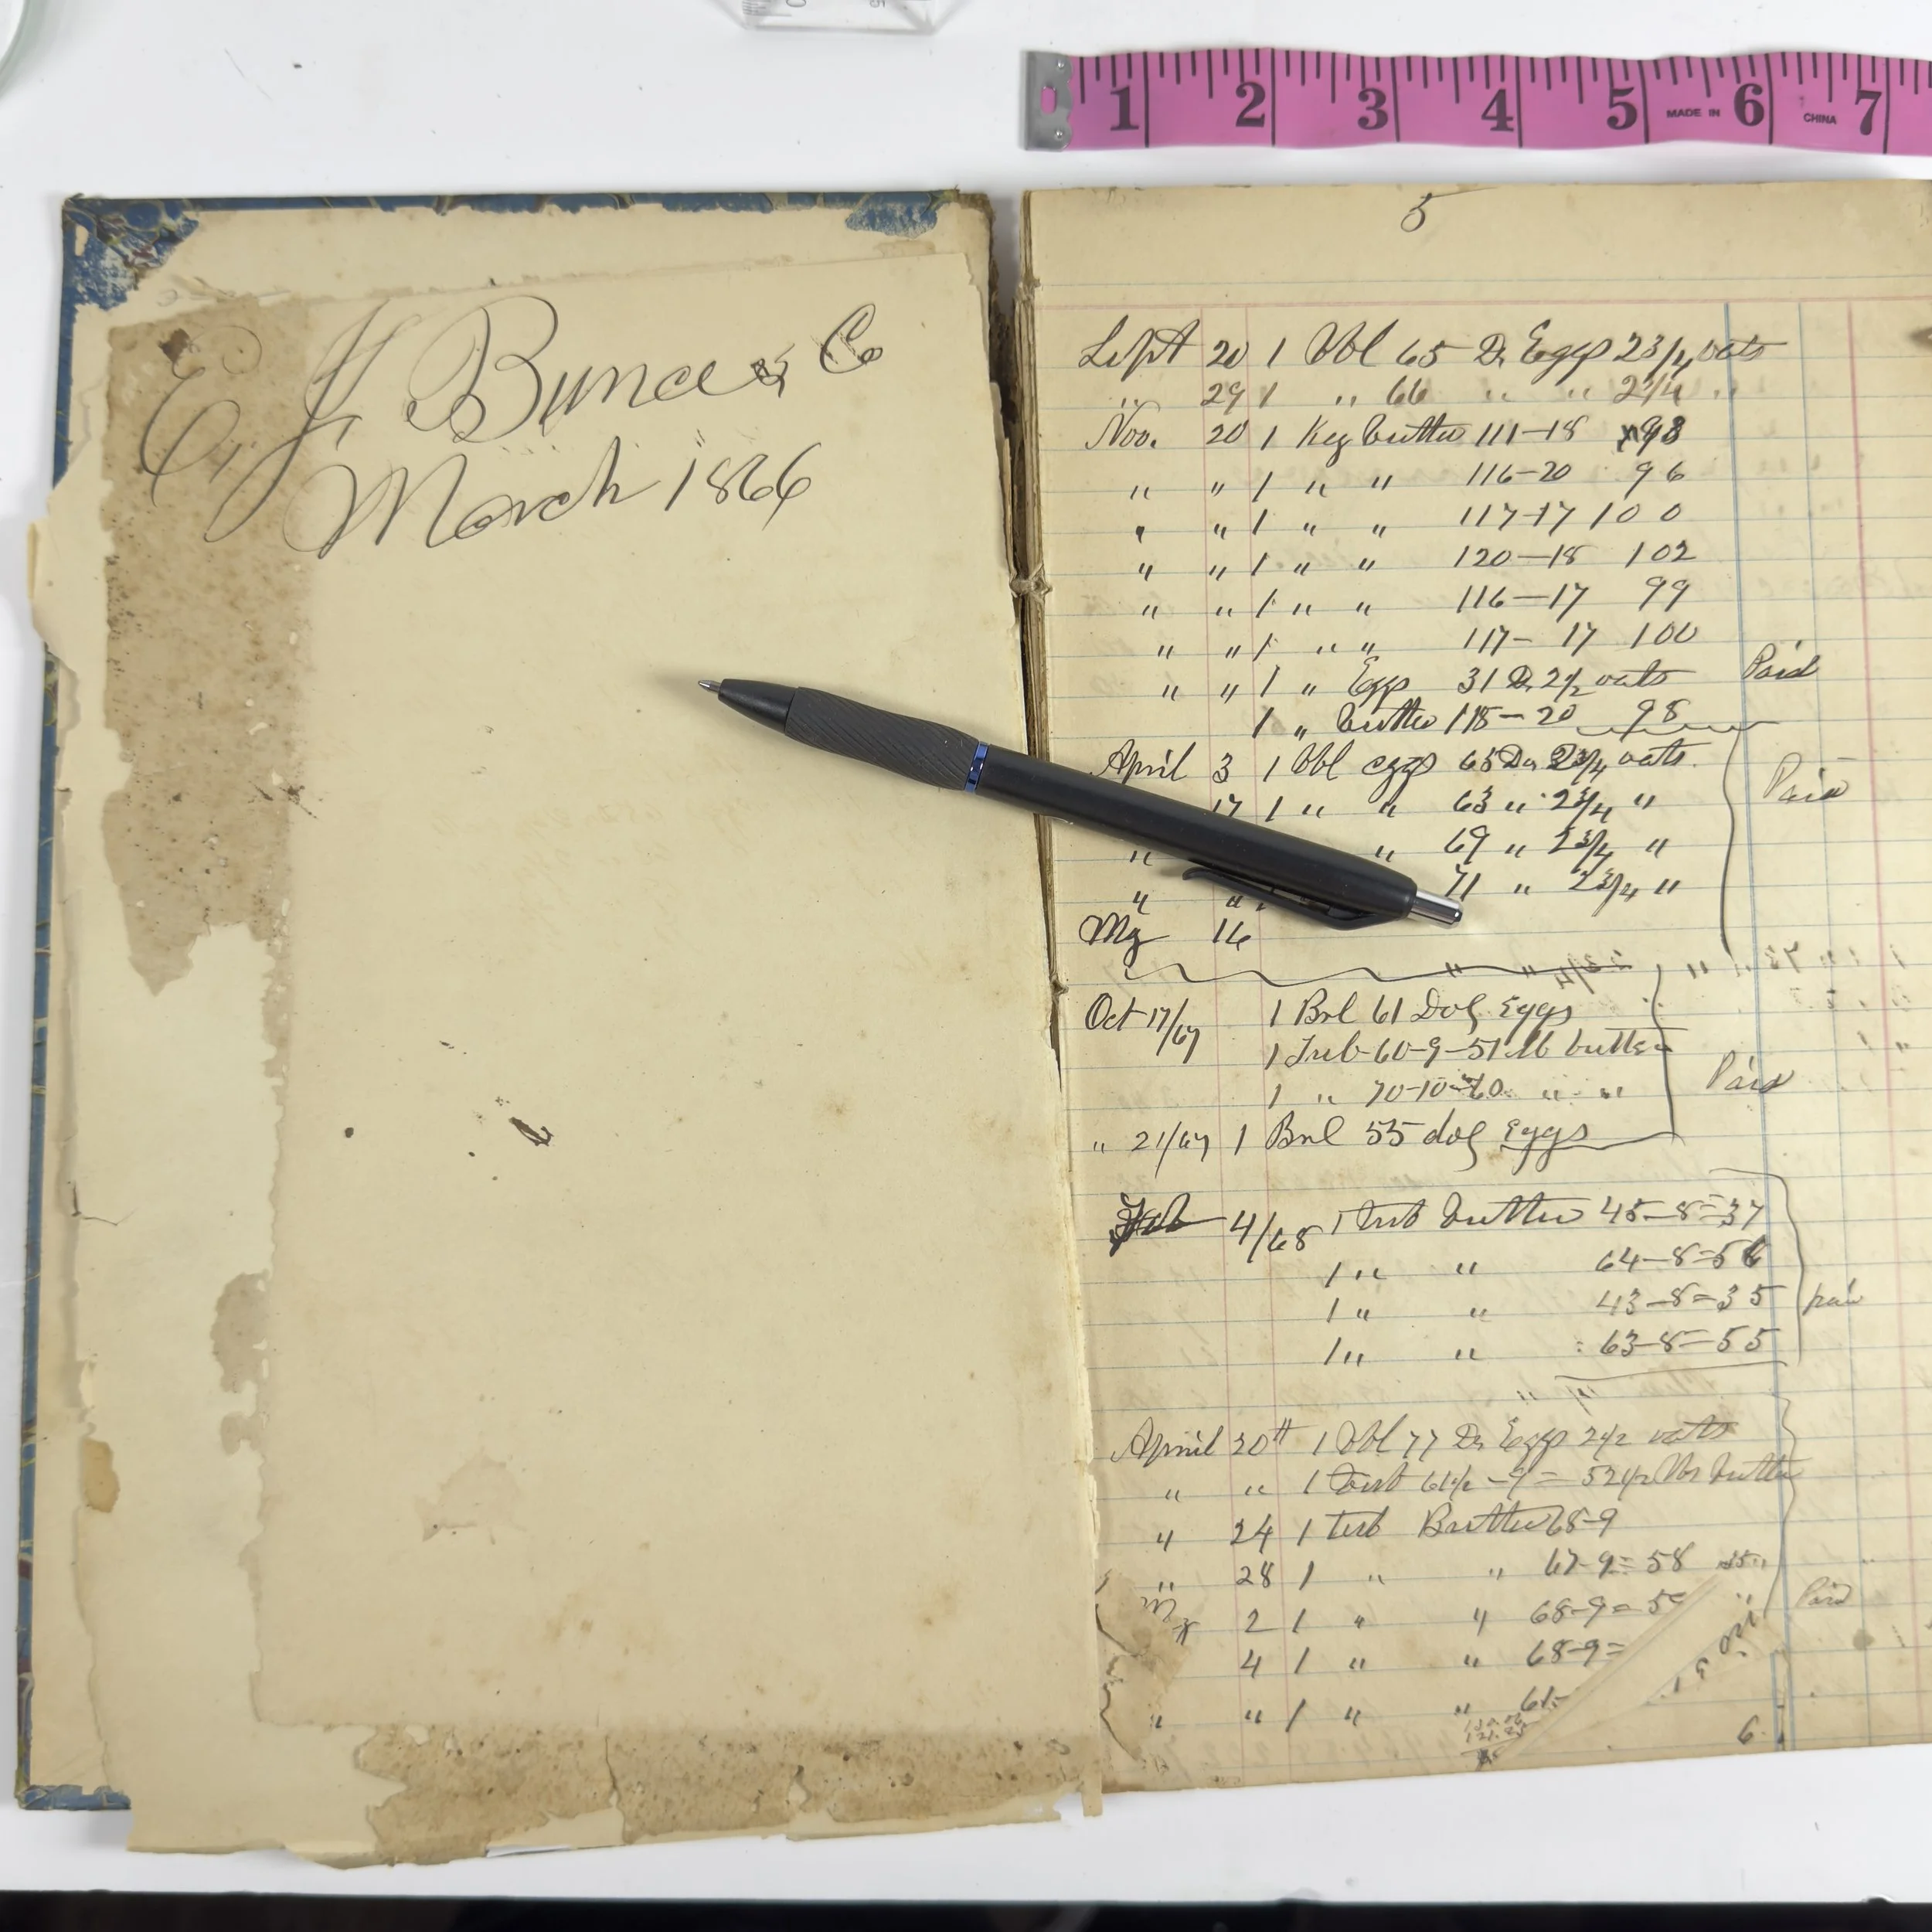 1 2 3 4 5 MADE IN 6 CHINA 7
E. J. Bunce & Co
March 1866
5
Sept 20 1 Bbl 65 Dz Eggs 2 3/4 oats
" 29 1 " 66 " " 2 3/4 "
Nov. 20 1 Keg butter 111-18 93
" " 1 " " 116-20 96
" " 1 " " 117-17 100
" " 1 " " 120-18 102
" " 1 " " 116-17 99
" " 1 " " 117-17 100
" " 1 " Eggs 31 Dz 2 1/2 oats Paid
1 " butter 118-20 98
April 3 1 Bbl eggs 65 Dz 2 3/4 oats.
17 1 " " 63 " 2 3/4 " Paid
" " 69 " 2 3/4 "
" " 71 " 2 3/4 "
My 16
Oct 17/67 1 Brl 61 Doz Eggs
1 Tub 60-9-51 lb butter
1 " 70-10-60 " " Paid
" 21/67 1 Brl 55 doz Eggs
Feb 4/68 1 tub butter 45-8=37
1 " " 64-8=56
1 " " 43-8=35 paid
1 " " 63-8=55
April 20th 1 Bbl 77 Dz Eggs 2 1/2 oats
" " 1 tub 61 1/2-9=52 1/2 lbs butter
" 24 1 tub Butter 68-9
" 28 1 " " 67-9=58
My 2 1 " " 68-9=59 Paid
4 1 " " 68-9=
" " 1 " " 61-
6